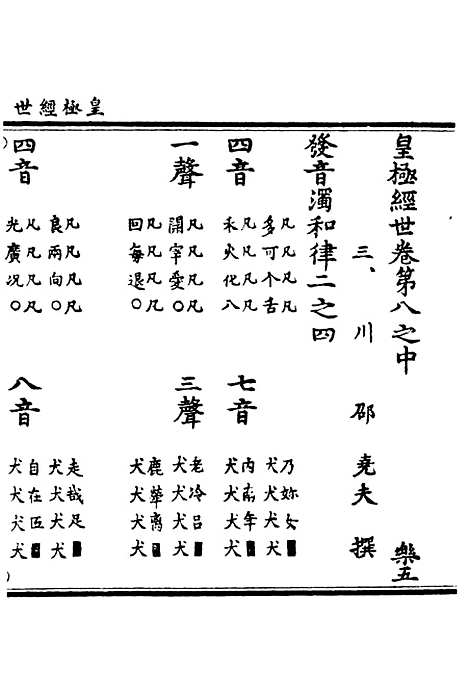 皇極經世
皇極經世卷第八之中 樂五
三、川 邵 堯夫 撰
發音濁和律二之四
四音 七音
凡凡凡凡 乃妳女■
多可个舌 犬犬犬犬
凡凡凡凡 內南年■
禾火化八 犬犬犬犬
一聲 三聲
凡凡凡凡 老冷呂■
開宰愛○ 犬犬犬犬
凡凡凡凡 鹿犖離■
回每退○ 犬犬犬犬
四音 八音
凡凡凡凡 走哉足■
良兩向○ 犬犬犬犬
凡凡凡凡 自在匠■
光廣况○ 犬犬犬犬